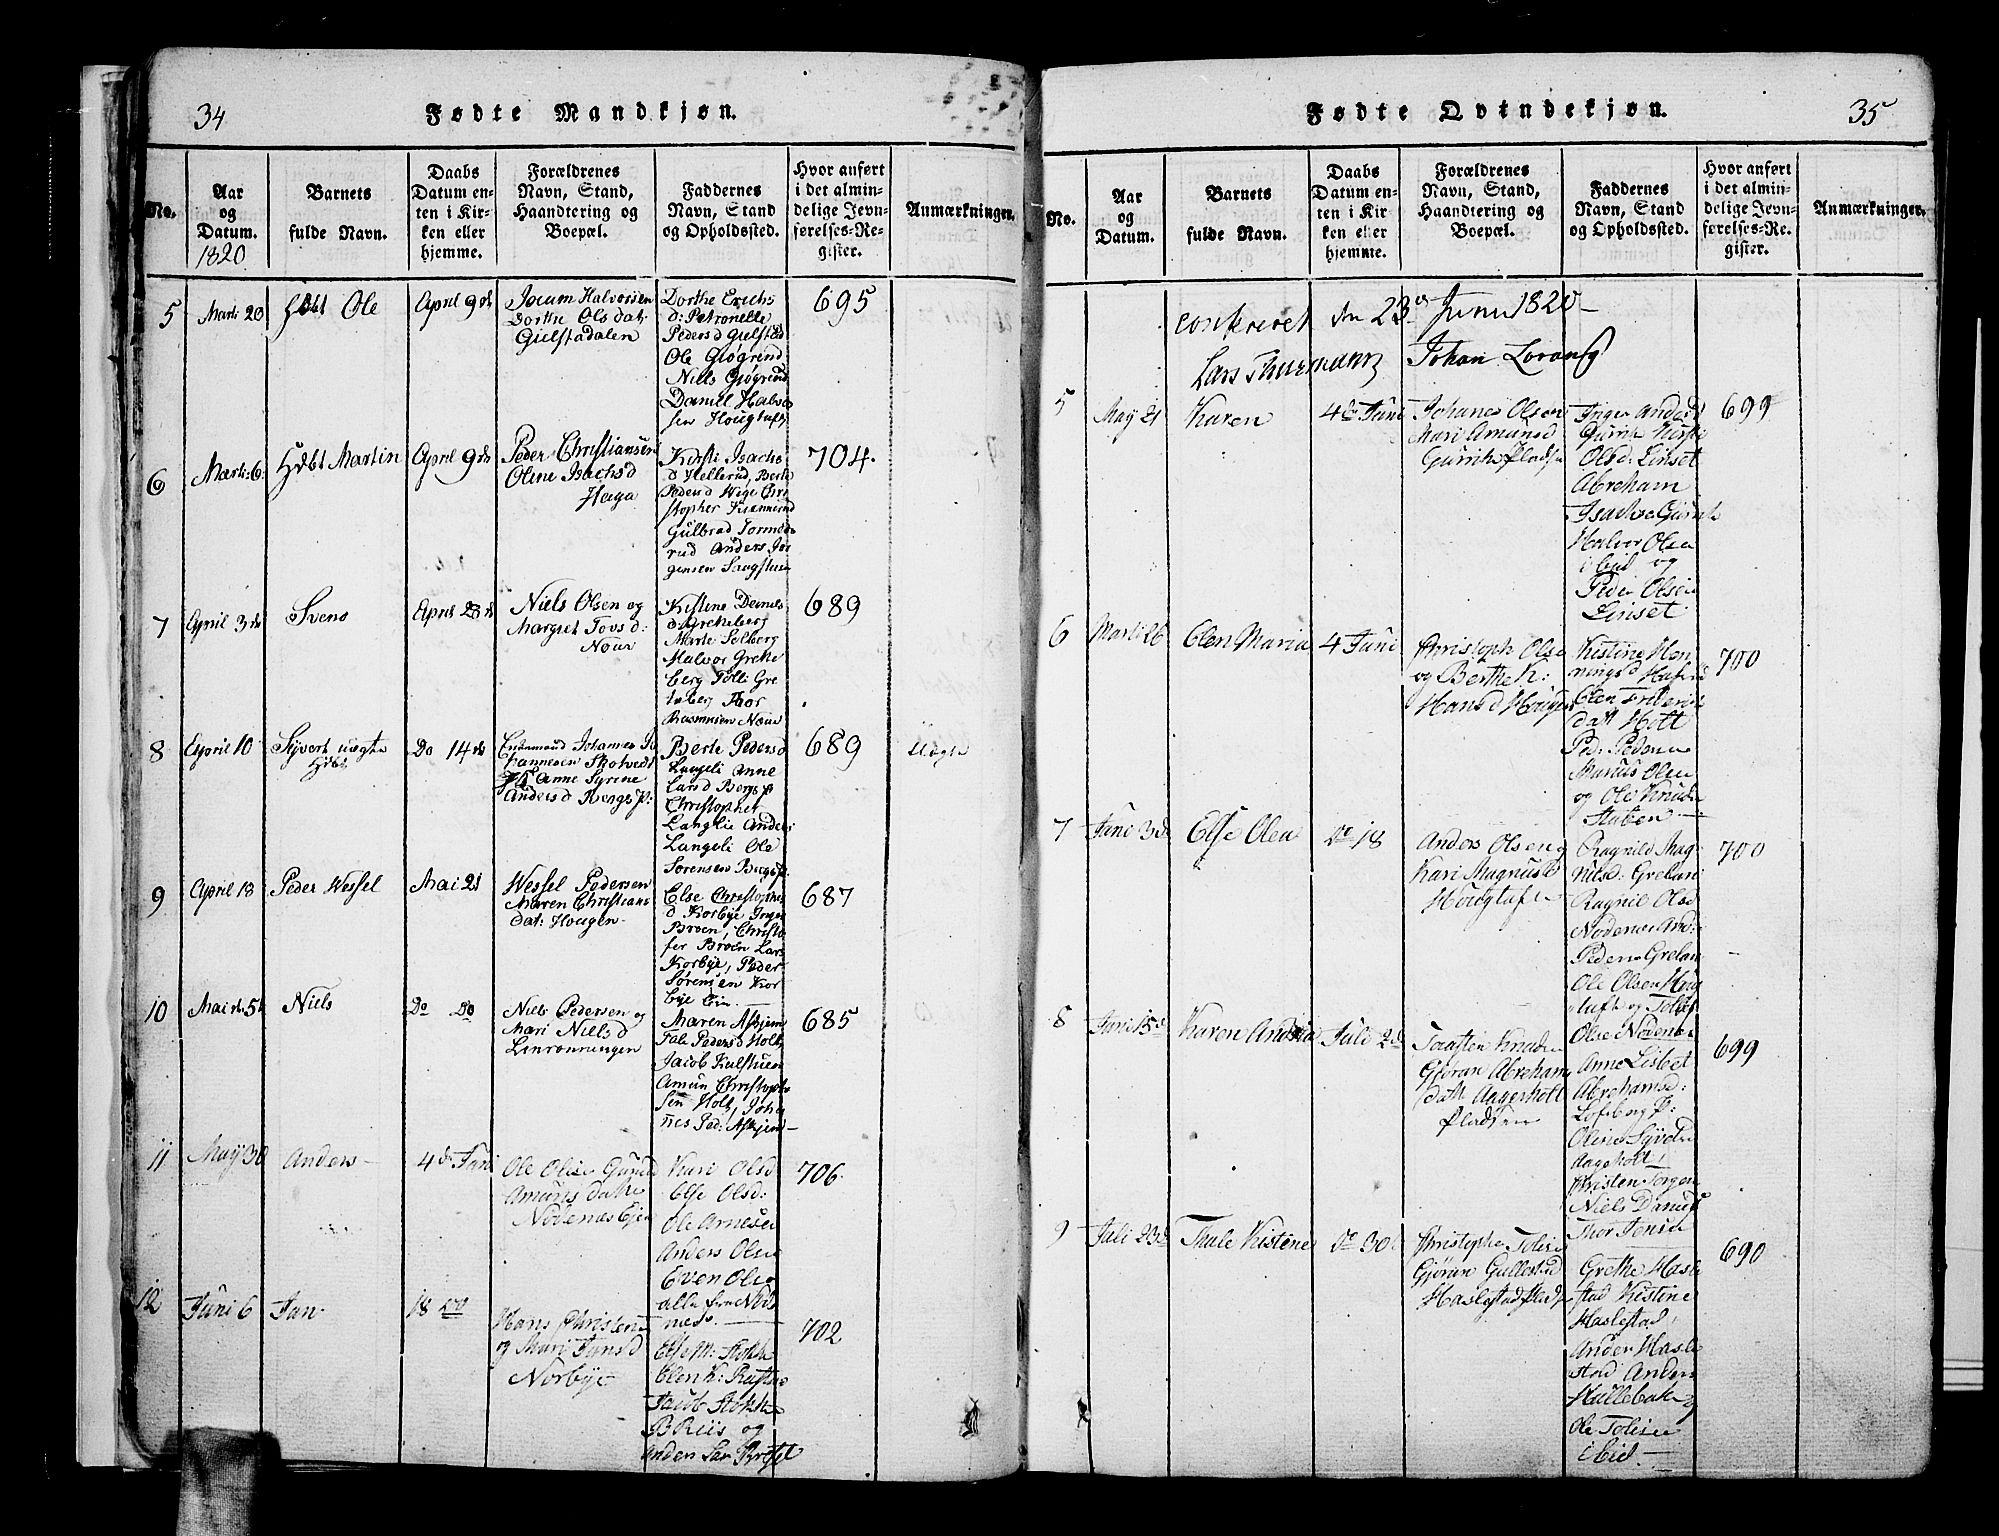 34
Fødte Mandkjøn.
No.
Aar
og
Datum.
1820
Barnets
fulde Navn.
Daabs
Datum en-
ten i Kir-
ken eller
hjemme.
Forældrenes
Navn, Stand,
Haandtering og
Boepæl.
Faddernes
Navn, Stand
og Opholdssted.
Hvor anført
i det almin-
delige Jevn-
førelses-Re-
gister.
Anmærkninger.
5
Marti 20
Hbt Ole
April 9de
Jocum Halvorsen
Dorthe Olsdat:
Gielstadalen
Dorthe Erichs
d: Petronelle
Pedersd Gielstad
Ole Giøgrind
Niels Giøgrind
Daniel Halvo
sen Hougtuft
695
6
Marti 6
Hbt Martin
April 9de
Peder Christiansen
Oline Isachsd
Haga
Kirsti Isachs
d Hellerud, Berte
Pedersd Wege Chri
stopher
Gulbrad Tormod
rud Anders Jør
gensen
704.
7
April 3de
Svens
April 23de
Niels Olsen og
Margret Tovsd:
Noer
Kistine
d: Grekeberg
Marte Solberg
Halvor Greke
berg Tolli Gre
keberg Thor
Rasmusen Noer
689
8
April 10
Syvert uægte
Hbt
Do 14de
Johannes Jo
hannesen
Anne Syrene
Andersd Bergs P:
Berte Pedersd
Langeli Anne
Larsd Bergs P
Christopher
Langlie Anders
Langeli Ole
Sorensen Bergs P:
689
Uægte
9
April 13
Peder Wessel
Mai 21
Wessel Pedersen
Maren Christians
dat: Hougen
Else Christophers
d Korbye Inger
Broen, Christo
fer Broen Lars
Korbye, Peder
Sørensen Kor
bye Eie.
687
10
Mai d. 5te
Niels
Do Do
Niels Pedersen og
Mari Nielsd
Linrønningen
Maren Askjem
Tale Pedersd Holt,
Jacob
Amun Christoph
sen Holt, Joha
nes Ped: Askjem
685
11
May 30
Anders
4de Juni
Ole Olsen Gunild
Amunsdatter
Nodenæs Eie
Kari Olsd
Else Olsd:
Ole Arnesen
Anders Olsen
Even Olsen
alle fra Node
næs.
706.
12
Juni 6
Jan
18 do
Hans Christensen
og Mari Jansd
Norbye
Else M: Stokke
Elen K:
Jacob Stokke
B Riis og
Anders
702
35
Fødte Qvindekjøn.
No.
Aar
og
Datum.
Barnets
fulde Navn.
Daabs
Datum en-
ten i Kir-
ken eller
hjemme.
Forældrenes
Navn, Stand,
Haandtering og
Boepæl.
Faddernes
Navn, Stand
og Opholdssted.
Hvor anført
i det almin-
delige Jevn-
førelses-Re-
gister.
Anmærkninger.
confereret den 23de Juni 1820
Lars Thurmann Johan Lorans
5
May 21
Karen
4de Juni
Johanes Olsen
Mari Amunsd
Gurrik Pladsen
Inger Andersd
Gurrik Kirsti
Olsd: Linset
Abreham
Isachse Gurrik
Halvor Olsen
Eid og
Peder Olsen
Linset
699
6
Marti 26
Elen Maria
4 Juni
Christoph Olsen
og Berthe K:
Hansd Hougen
Kistine Hen
ningsd
Elen Frederik
datt Holt
Ped: Pedersen
Marius Olsen
og Ole Knudsen
Staben
700
7
Juni 3de
Else Olea
Do 18
Anders Olsen og
Kari Magnusd
Hougtuft
Ragnild Mag
nusd: Greland
Ragnil Olsd
Nodenes And:
Pedersen Greland
Ole Olsen Houg
tuft og Tollef
Olse Nodenes
700
8
Juni 15de
Karen Andrea
Juli 2de
Torsten Knudsen
Gjøran Abrehams
datt Aagerholt
Pladsen
Anne Lisbet
Abrahamsd:
Lofsberg P:
Oline
Aagerholt,
Christen Jørgen
Niels Daniels
Thor Jensen
699
9
Juli 23de
Thale Kistine
do 30
Christopher Tolisen
Gjøran Gullestad
Haslestad Pladsen
Grethe Hasle
stad Kistine
Haslestad,
Anders Hasle
stad Anders
Hullebak og
Ole Tolisen
i Eid
690